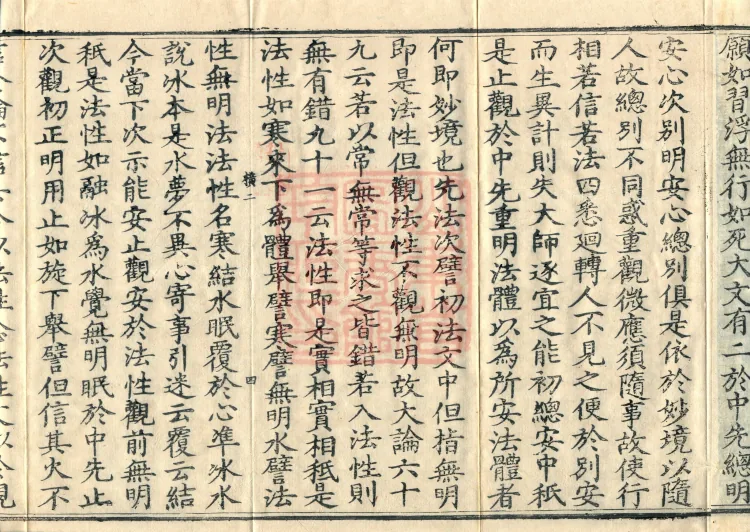 願如習浮無行如死大文有二於中先總明
安心次別明安心總別俱是依於妙境以隨
人故總別不同惑重觀微應須隨事故使行
相若信若法四悉迴轉人不見之便於別安
而生異計則失大師逐宜之能初總安中秖
是止觀於中先重明法體以為所安法體者
何即妙境也先法次譬初法文中但指無明
即是法性但觀法性不觀無明故大論六十
九云若以常無常等求之皆錯若入法性則
無有錯九十一云法性即是實相實相秖是
法性如寒來下為體舉譬寒譬無明水譬法
橫二
四
性無明法法性名寒結水眠覆於心準冰水
說冰本是水夢不異心寄事引迷云覆云結
今當下次示能安止觀安於法性觀前無明
秖是法性如融冰為水覺無明眠於中先止
次觀初正明用止如旋下舉譬但信其火不